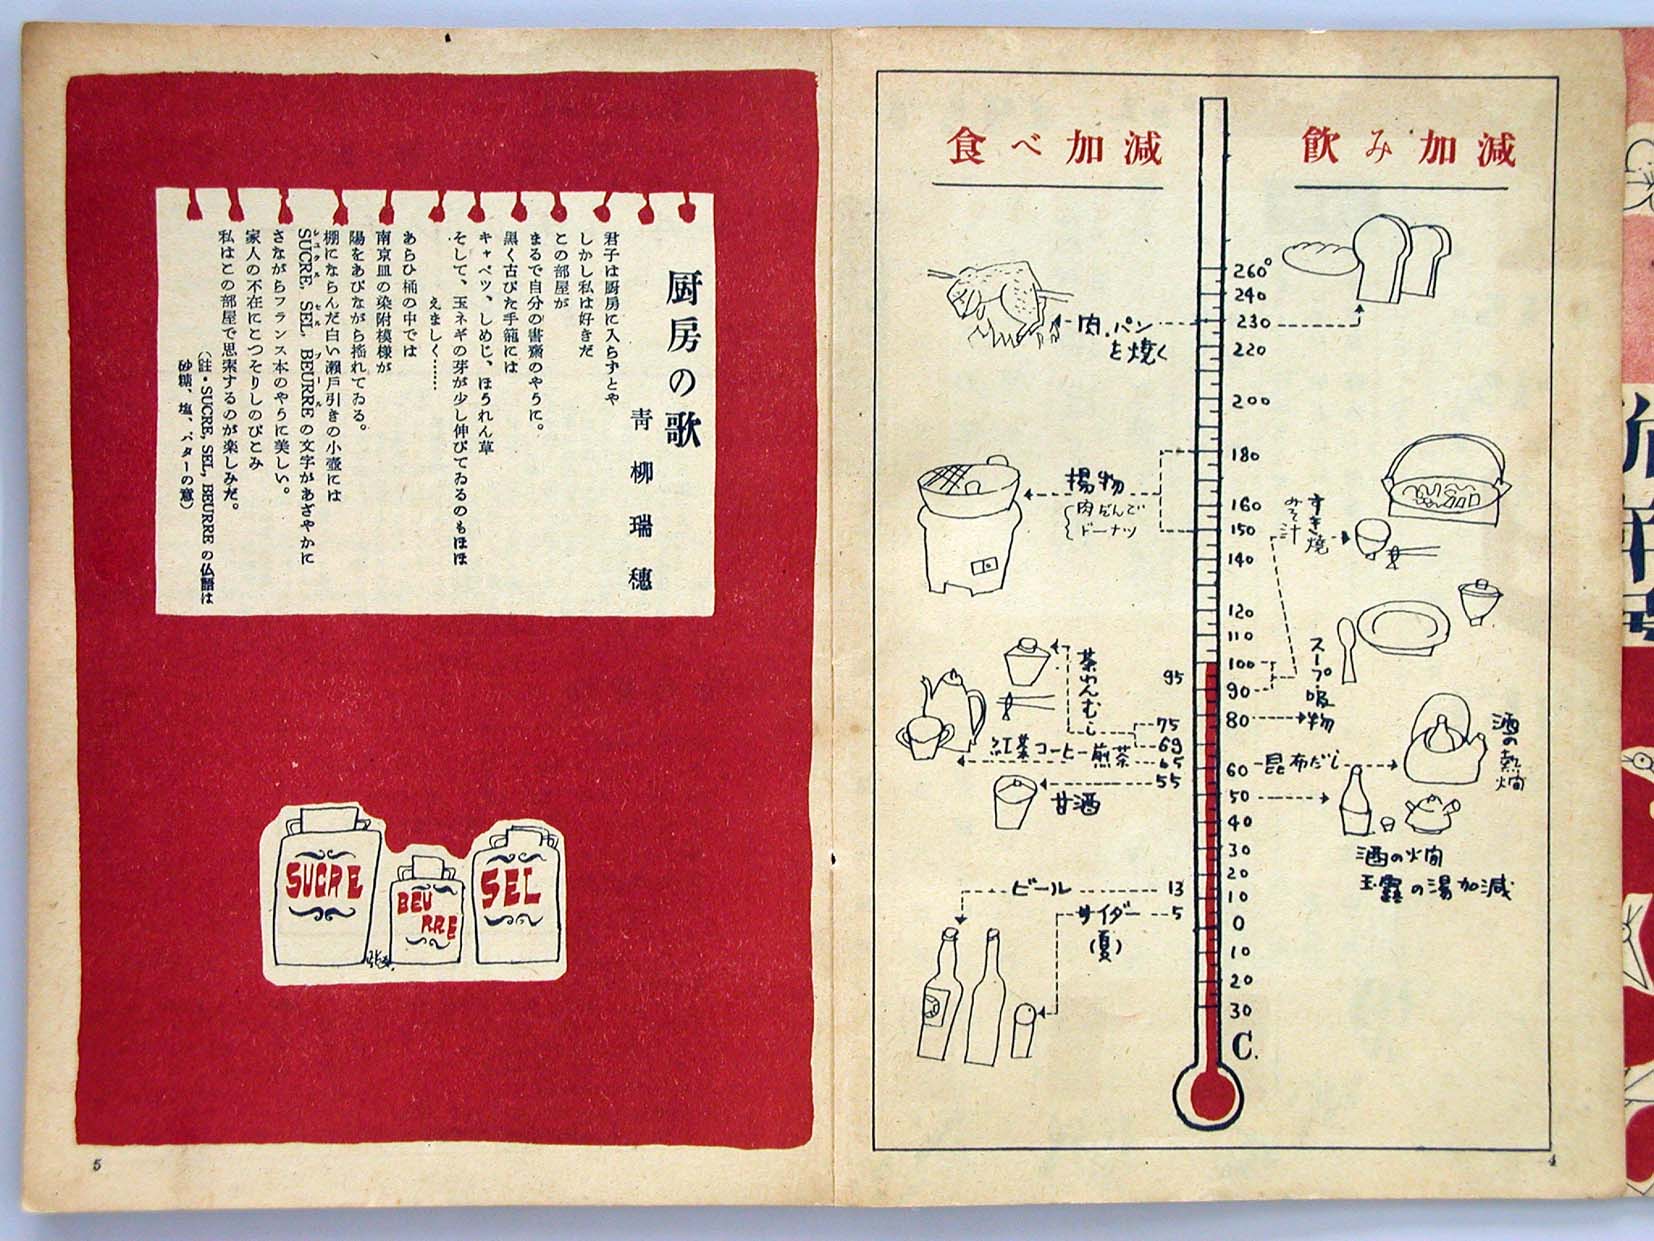 飲み加減
食べ加減
260°
240
230
220
200
180
160
150
140
120
110
100
90
80
60
50
40
30
20
10
0
10
20
30
C.
95
75
69
65
55
13
5
肉、パン
を焼く
揚物
肉だんご
ドーナツ
すき焼
みそ汁
茶わんむし
スープ・吸物
紅茶コーヒー煎茶
昆布だし
酒の熱燗
甘酒
酒の燗
玉露の湯加減
ビール
サイダー
(夏)
4
厨房の歌
青柳瑞穂
君子は厨房に入らずとや
しかし私は好きだ
この部屋が
まるで自分の書齋のやうに。
黒く古びた手籠には
キャベツ、しめじ、ほうれん草
そして、玉ネギの芽が少し伸びてゐるのもほほ
えましく……
あらひ桶の中では
南京皿の染附模様が
陽をあびながら搖れてゐる。
棚にならんだ白い瀬戸引きの小壺には
SUCRE, SEL, BEURRE の文字があざやかに
シュクル セル ブール
さながらフランス本のやうに美しい。
家人の不在にこつそりしのびこみ
私はこの部屋で思索するのが楽しみだ。
(註・SUCRE, SEL, BEURRE の仏語は
砂糖、塩、バターの意)
SUCRE
BEU
RRE
SEL
5